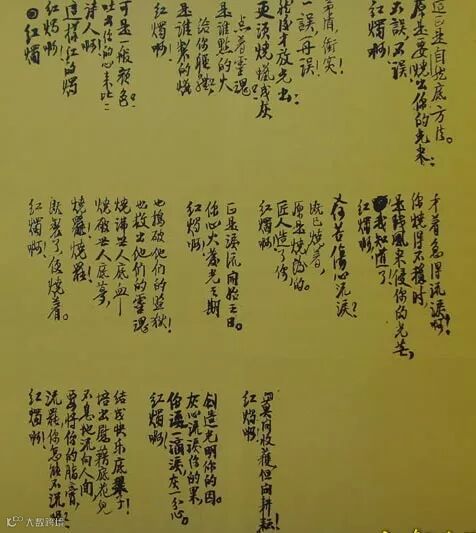 红烛
红烛啊!
这样红的烛!
诗人啊!
吐出你的心来比
可是一般颜色?
红烛啊!
是谁制的蜡
给你躯体?
是谁点的火
点着灵魂
更须烧蜡成灰
然后才放光出?
一误再误!
矛盾,冲突!
红烛啊!
不误,不误
原是要烧出你的光来
这正是自然底方法。
红烛啊!
既制了,便烧着。
烧罢!烧罢!
烧破世人底梦,
烧沸世人底血
也救出他们的灵魂
也捣破他们的监狱!
红烛啊!
你心火发光之期
正是泪流开始之日。
红烛啊!
匠人造了你,
原是为烧的。
既已烧着,
又何苦伤心流泪?
红烛啊!
我知道了!
是残风来侵你的光芒,
你烧得不稳时
才着急得流泪啊!
红烛啊!
流罢你怎能不流呢
要将你的脂膏,
不息地流向人间,
培出慰藉底花儿
结成快乐底果子!
红烛啊!
你流一滴泪灰一分心。
灰心流泪你的果,
创造光明你的因。
红烛啊!
莫问收获但问耕耘!
大数跨境